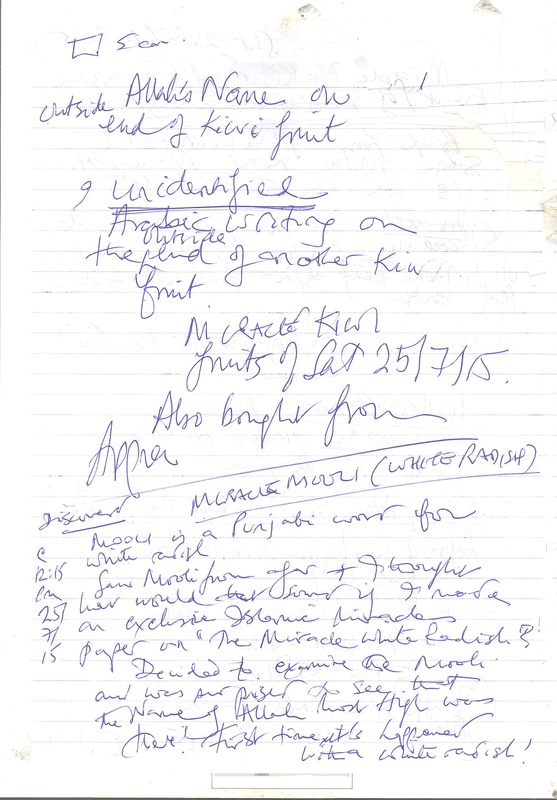 Scan.
Allah's Name on
outside
end of Kiwi fruit
unidentified
Arabic writing on
outside
the end of another Kiwi
fruit
MIRACLE KIWI
fruits of Sat 25/7/15.
Also bought from
MIRACLE MOOLI (WHITE RADISH)
discovered
Mooli is a Punjabi word for
white radish
12:15
pm
25/
7/
15
Saw Mooli from afar + I thought
how would that sound if I made
an exclusive Islamic Miracles
paper on "The Miracle White Radish"?
Decided to examine the Mooli
and was surprised to see that
the Name of Allah Most High was
there! First time it's happened
with a white radish!